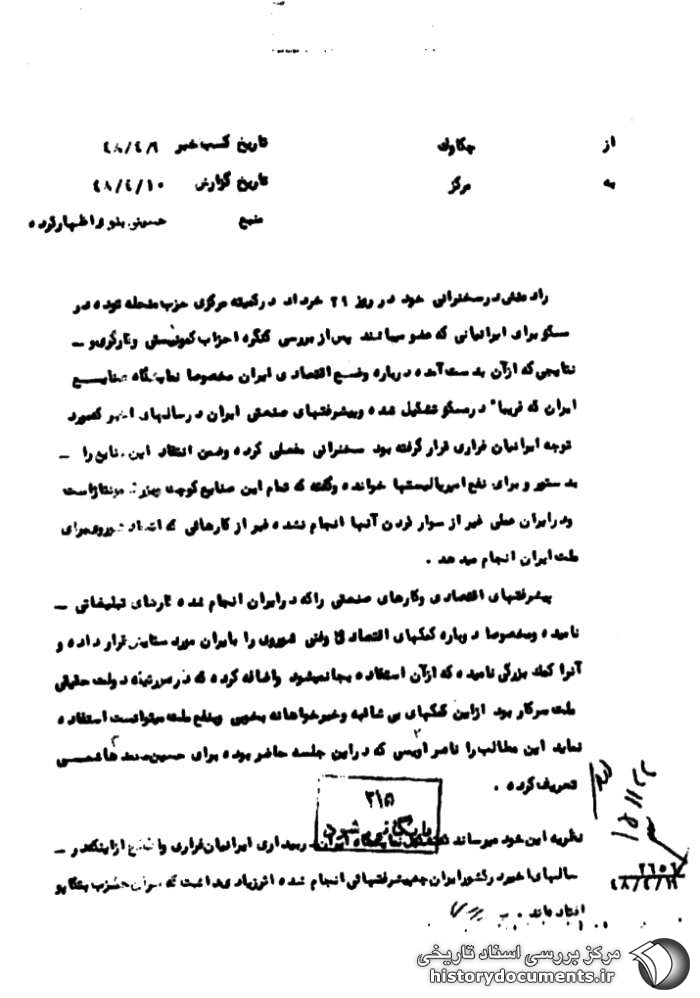 از چکاوك تاریخ کسب خبر ۴۸/۴/۹
به مرکز تاریخ گزارش ۴۸/۴/۱۰
منبع حسینی بنو اظهار کرده
رادمنش در سخنرانی خود در روز ۲۹ خرداد در کمیته مرکزی حزب منحله توده در
مسکو برای ایرانیانی که عضو میباشند پس از بررسی کنگره احزاب کمونیستی و کارگری و ـ
نتایجی که از آن بدست آمده درباره وضع اقتصادی ایران مخصوصا نمایشگاه صنایع
ایران که قریبا" در مسکو تشکیل شده و پیشرفتهای صنعتی ایران در سالهای اخیر که مورد
توجه ایرانیان فراری قرار گرفته بود سخنرانی مفصلی کرده و ضمن انتقاد این صنایع را ـ
بدستور و برای نفع امپریالیستها خوانده و گفته که تمام این صنایع کوچك و بزرگ مونتاژ است
و در ایران عملی غیر از سوار کردن آنها انجام نشده غیر از کارهائی که اتحاد شوروی برای
ملت ایران انجام میدهد .
پیشرفتهای اقتصادی و کارهای صنعتی را که در ایران انجام شده کارهای تبلیغاتی ـ
نامیده و مخصوصا درباره کمکهای اقتصادی و فنی شوروی را بایران مورد ستایش قرار داده و
آنرا کمك بزرگی نامیده که از آن استفاده بجا نمیشود و اضافه کرده که هر سررشته دولت حقیقی
ملت سرکار بود از این کمکهای بی شائبه و خیرخواهانه بخوبی و بنفع ملت میتوانست استفاده
نماید این مطالب را ناصر اویس که در این جلسه حاضر بوده برای حسین هاشمی
تعریف کرده .
۲۱۵
بایگانی شود
نظریه این خود میرساند که تشکیل نمایشگاه ایران در بیداری ایرانیان فراری و از اینکه در ـ
سالهای اخیر در کشور ایران چه پیشرفتهائی انجام شده اثر زیادی داشت که سران حزب بتکاپو
افتاده اند .
۲۶۵۶
۴۸/۴/۱۹
مرکز بررسی اسناد تاریخی
historydocuments.ir